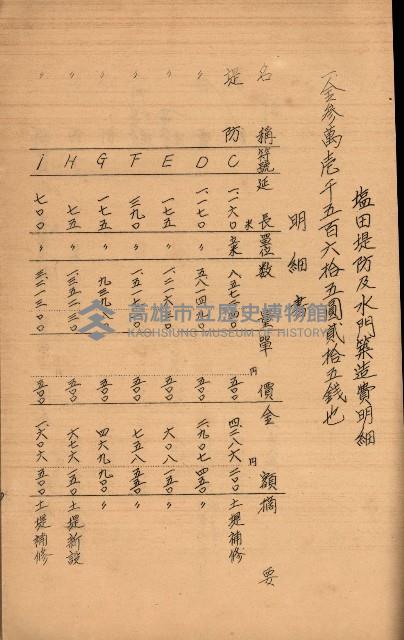 塩田堤防及水門築造費明細
一金參萬壱千五百六拾五圓貳拾五錢也
明細書
名稱 符號 延長 單位 數量 單價 金額 摘要
堤防 C 一.一六〇米 立米 八.五七二.四〇 円五〇〇 円四.二八六.二〇〇 土堤補修
〃 D 一.一七〇 〃 五.八一四.九〇 五〇〇 二.九〇七.四五〇 〃
〃 E 一七五 〃 一.二一六.三〇 五〇〇 六〇八.一五〇 〃
〃 F 三九〇 〃 一.五一七.一〇 五〇〇 七五八.五五〇 〃
〃 G 一七五 〃 九三九.八〇 五〇〇 四六九.九〇〇 〃
〃 H 七五 〃 一.三五二.三〇 五〇〇 六七六.一五〇 土堤新設
〃 I 七〇〇 〃 三.二一三.〇〇 五〇〇 一.六〇六.五〇〇 土堤補修
高雄市立歷史博物館
KAOHSIUNG MUSEUM OF HISTORY